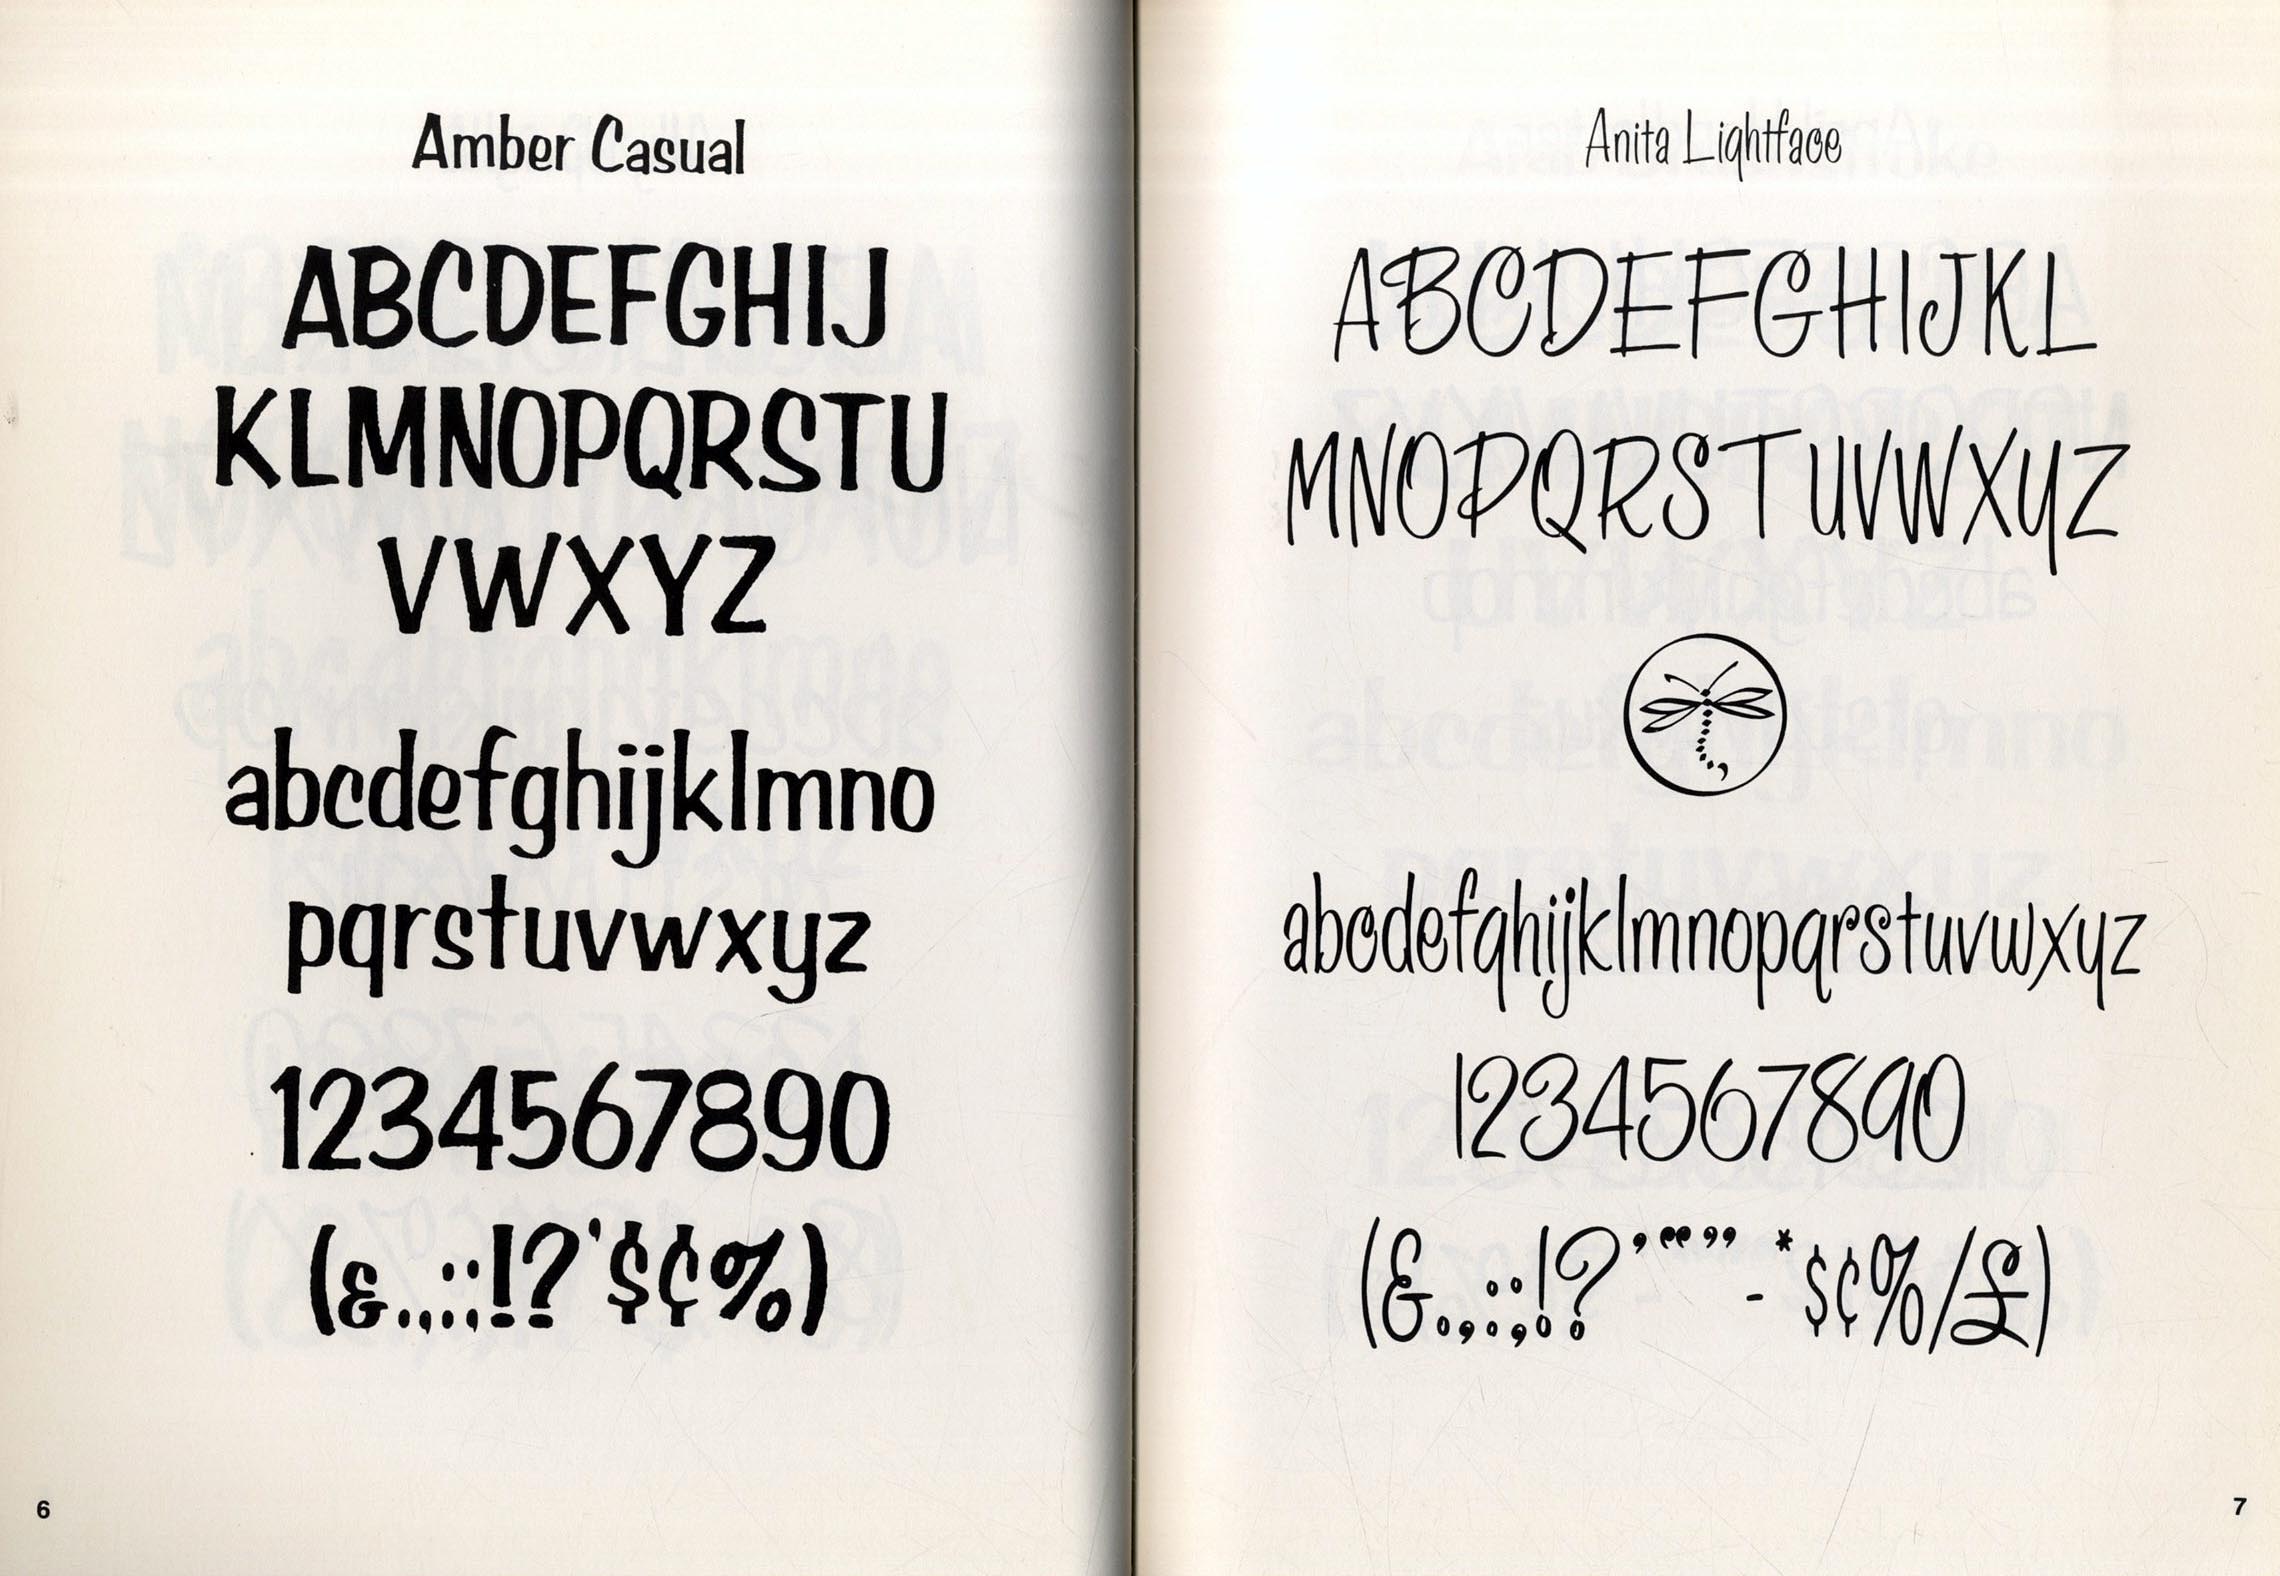 Amber Casual
ABCDEFGHIJ
KLMNOPQRSTU
VWXYZ
abcdefghijklmno
pqrstuvwxyz
1234567890
(&.,:;!?'$¢%)
6
Anita Lightface
ABCDEFGHIJKL
MNOPQRSTUVWXYZ
abcdefghijklmnopqrstuvwxyz
1234567890
(&.,:;!?’“”-*$¢%/£)
7